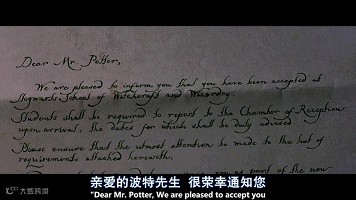 Dear Mr. Potter,
We are pleased to inform you that you have been accepted at
Hogwarts School of Witchcraft and Wizardry.
Students shall be required to report to the Chamber of Reception
upon arrival, the dates for which shall be duly advised.
Please ensure that the utmost attention be made to the list of
requirements attached herewith.
of the new
亲爱的波特先生 很荣幸通知您
"Dear Mr. Potter, We are pleased to accept you